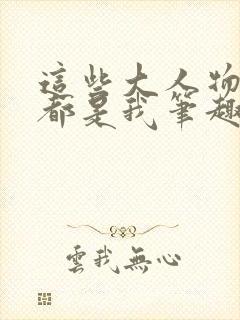 這些大人物
都是我筆趣
雲我無心